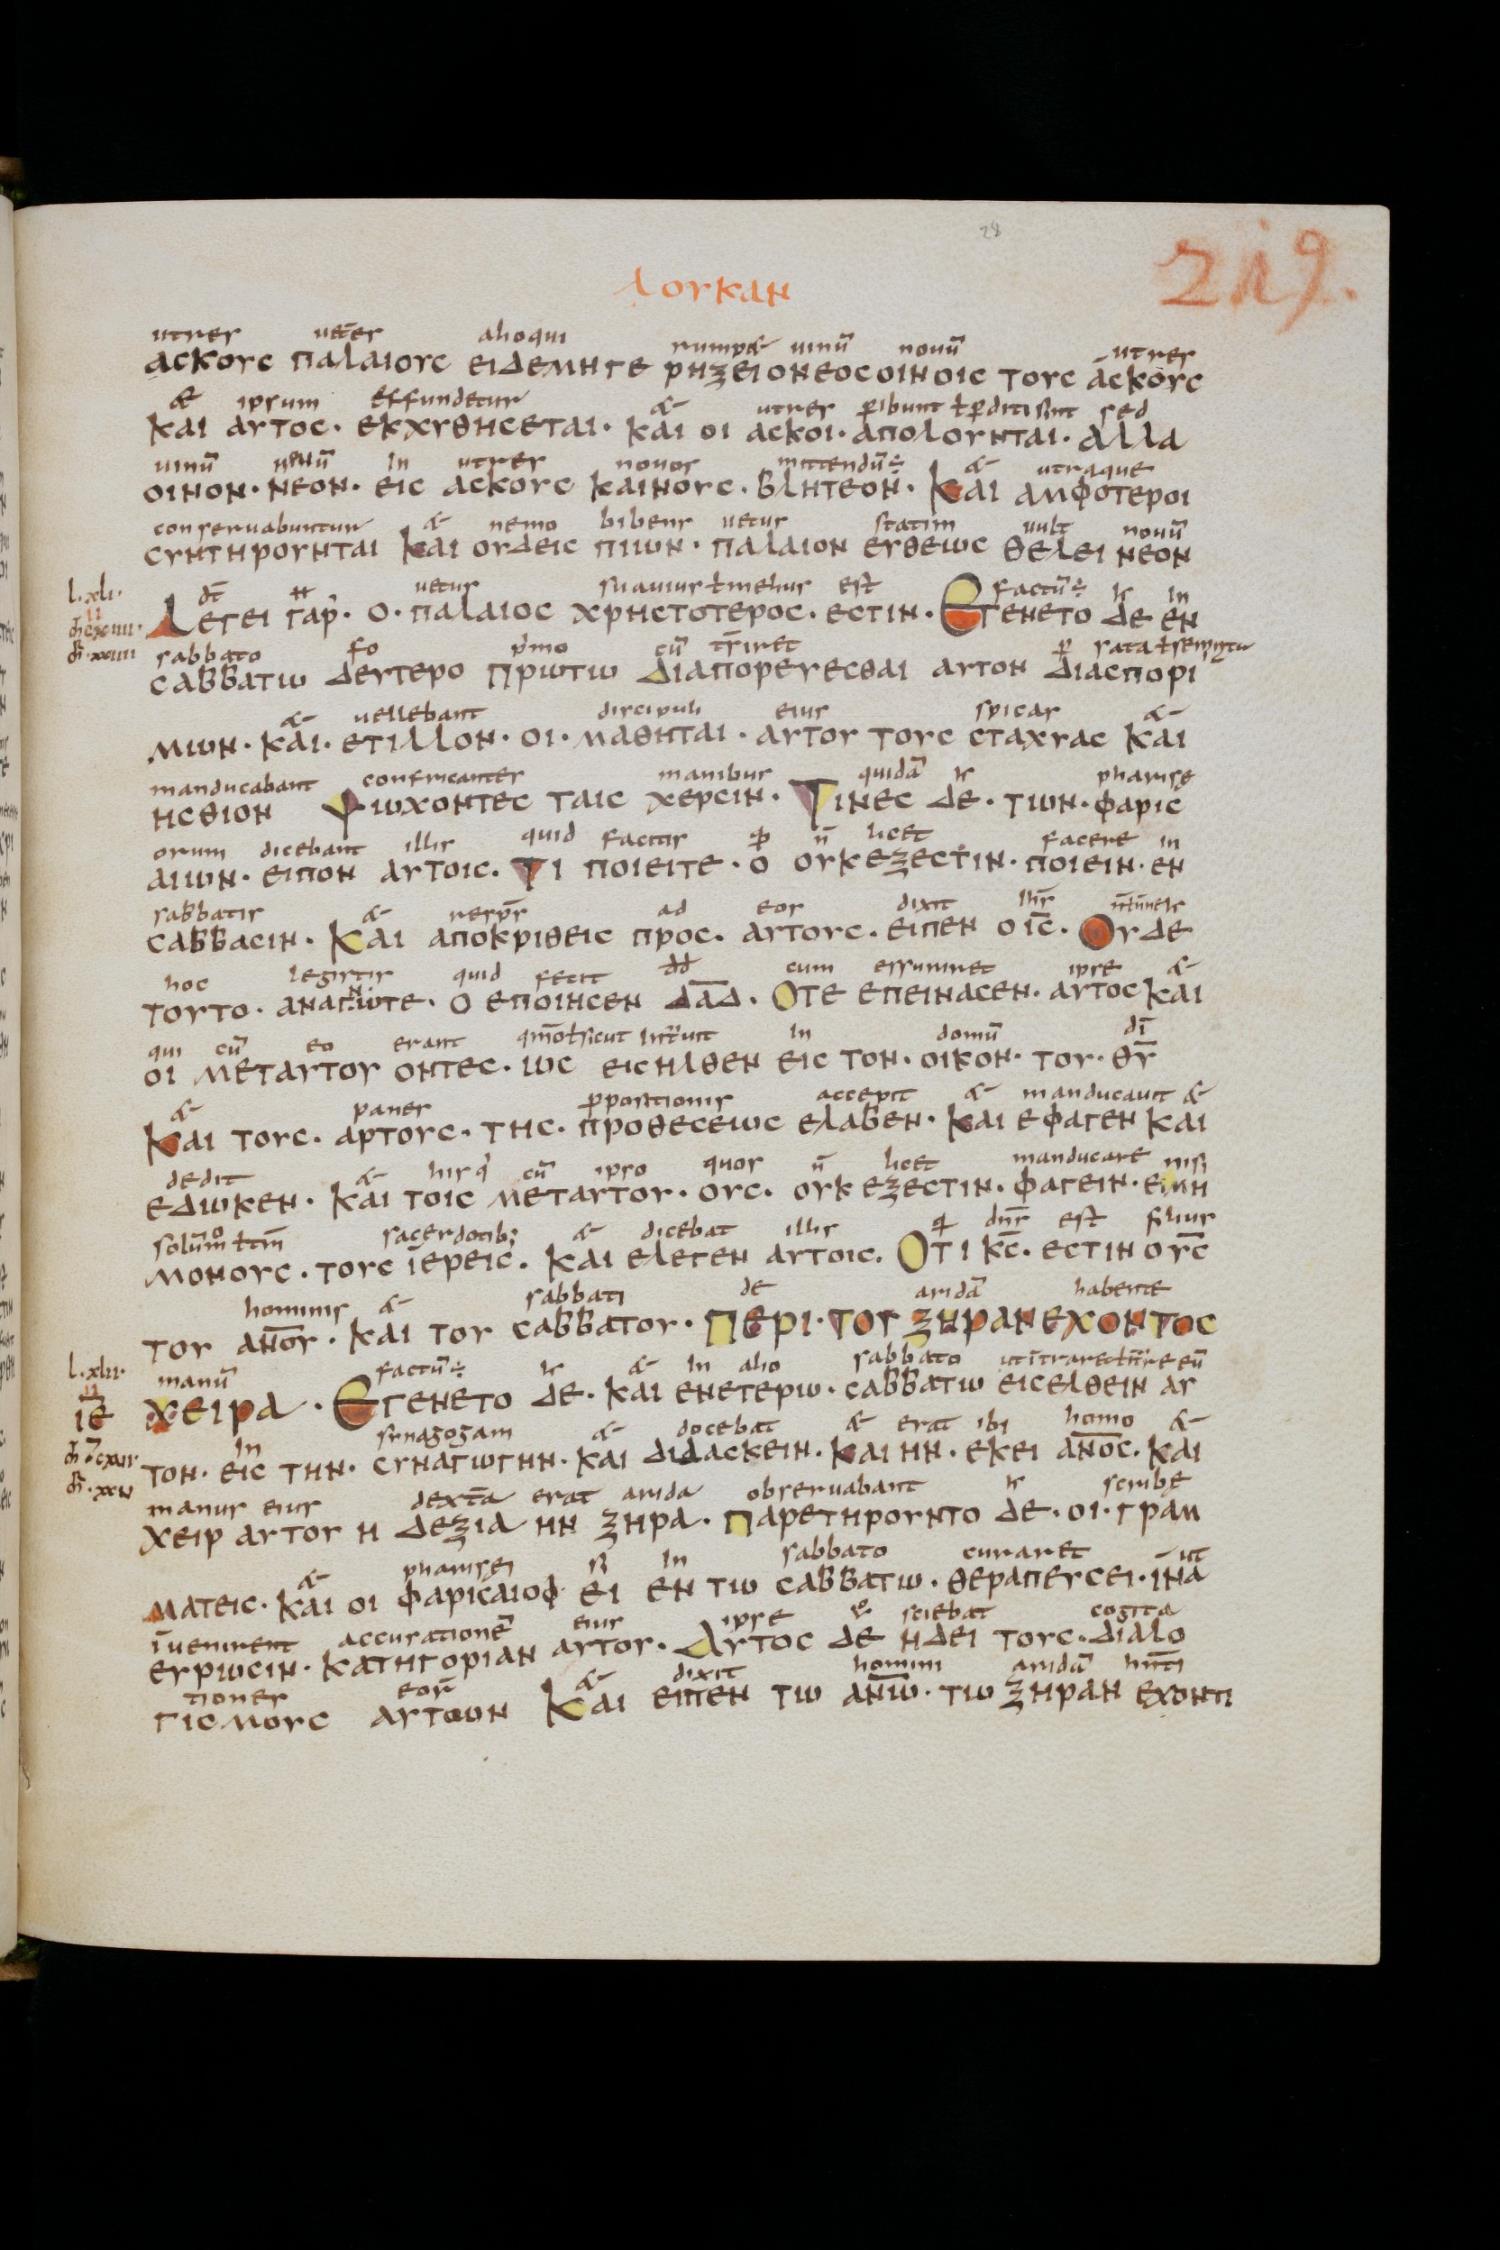 28
219.
ΛΟΥΚΑΝ
utres uet̄es alioqui rumpet uinū nouū utres
ΑϹΚΟΥϹ ΠΑΛΑΙΟΥϹ ΕΙΔΕΜΗΓΕ ΡΗΞΕΙ Ο ΝΕΟϹ ΟΙΝΟΙϹ ΤΟΥϹ ΑϹΚΟΥϹ
& ipsum effundetur & utres p̄ibunt ł p̄diti sunt sed
ΚΑΙ ΑΥΤΟϹ· ΕΚΧΥΘΗϹΕΤΑΙ· ΚΑΙ ΟΙ ΑϹΚΟΙ· ΑΠΟΛΟΥΝΤΑΙ· ΑΛΛΑ
uinū nouū in utres nouos mittendū ÷ & utraque
ΟΙΝΟΝ· ΝΕΟΝ· ΕΙϹ ΑϹΚΟΥϹ ΚΑΙΝΟΥϹ· ΒΛΗΤΕΟΝ· ΚΑΙ ΑΜΦΟΤΕΡΟΙ
conseruabuntur & nemo bibens uetus statim uult nouū
ϹΥΝΤΗΡΟΥΝΤΑΙ ΚΑΙ ΟΥΔΕΙϹ ΠΙΩΝ· ΠΑΛΑΙΟΝ ΕΥΘΕΩϹ ΘΕΛΕΙ ΝΕΟΝ
l. xli· dt̄ uetus suauius ł melius est factū ÷ in
ΛΕΓΕΙ ΓΑΡ· Ο· ΠΑΛΑΙΟϹ ΧΡΗϹΤΟΤΕΡΟϹ· ΕϹΤΙΝ· ΕΓΕΝΕΤΟ ΔΕ ΕΝ
sabbato p̄mo cū tr̄iret sata
ϹΑΒΒΑΤΩ ΔΕΥΤΕΡΟ ΠΡΩΤΩ ΔΙΑΠΟΡΕΥΕϹΘΑΙ ΑΥΤΟΝ ΔΙΑϹΠΟΡΙ
& uellebant discipuli eius spicas &
ΜΩΝ· ΚΑΙ· ΕΤΙΛΛΟΝ· ΟΙ· ΜΑΘΗΤΑΙ· ΑΥΤΟΥ ΤΟΥϹ ϹΤΑΧΥΑϹ ΚΑΙ
manducabant confricantes manibus quidā pharisę
ΗϹΘΙΟΝ ΨΩΧΟΝΤΕϹ ΤΑΙϹ ΧΕΡϹΙΝ· ΤΙΝΕϹ ΔΕ· ΤΩΝ· ΦΑΡΙϹ
orum dicebant illis quid facitis n̄ licet facere in
ΑΙΩΝ· ΕΙΠΟΝ ΑΥΤΟΙϹ· ΤΙ ΠΟΙΕΙΤΕ· Ο ΟΥΚ ΕΞΕϹΤΙΝ· ΠΟΙΕΙΝ· ΕΝ
sabbatis & resp̄s ad eos dixit ih̄s
ϹΑΒΒΑϹΙΝ· ΚΑΙ ΑΠΟΚΡΙΘΕΙϹ ΠΡΟϹ· ΑΥΤΟΥϹ· ΕΙΠΕΝ Ο ΙϹ̄· ΟΥΔΕ
hoc legistis quid fecit dd cum essuriret ipse &
ΤΟΥΤΟ· ΑΝΑΓΝΩΤΕ· Ο ΕΠΟΙΗϹΕΝ ΔᾹΔ· ΟΤΕ ΕΠΕΙΝΑϹΕΝ· ΑΥΤΟϹ ΚΑΙ
qui cū eo erant qm̄o ł sicut intr̄uit in domū dī
ΟΙ ΜΕΤΑΥΤΟΥ ΟΝΤΕϹ· ΩϹ ΕΙϹΗΛΘΕΝ ΕΙϹ ΤΟΝ· ΟΙΚΟΝ· ΤΟΥ· ΘῩ
& panes p̄positionis accepit & manducauit &
ΚΑΙ ΤΟΥϹ· ΑΡΤΟΥϹ· ΤΗϹ· ΠΡΟΘΕϹΕΩϹ ΕΛΑΒΕΝ· ΚΑΙ ΕΦΑΓΕΝ ΚΑΙ
dedit & his q' cū ipso quos n̄ licet manducare nisi
ΕΔΩΚΕΝ· ΚΑΙ ΤΟΙϹ ΜΕΤΑΥΤΟΥ· ΟΥϹ· ΟΥΚ ΕΞΕϹΤΙΝ· ΦΑΓΕΙΝ· ΕΙΜΗ
solum ł tm̄ sacerdotib; & dicebat illis dn̄s est filius
ΜΟΝΟΥϹ· ΤΟΥϹ ΙΕΡΕΙϹ· ΚΑΙ ΕΛΕΓΕΝ ΑΥΤΟΙϹ· ΟΤΙ ΚϹ̄· ΕϹΤΙΝ Ο ΥϹ̄
hominis & sabbati de aridā habente
ΤΟΥ ΑΝ̄ΟΥ· ΚΑΙ ΤΟΥ ϹΑΒΒΑΤΟΥ· ΠΕΡΙ· ΤΟΥ ΞΗΡΑΝ ΕΧΟΝΤΟϹ
l. xlii· manū factū ÷ & in alio sabbato
ΙΕ ΧΕΙΡΑ· ΕΓΕΝΕΤΟ ΔΕ· ΚΑΙ ΕΝ ΕΤΕΡΩ· ϹΑΒΒΑΤΩ ΕΙϹΕΛΘΕΙΝ ΑΥ
in sẏnagogam & docebat & erat ibi homo &
ΤΟΝ· ΕΙϹ ΤΗΝ· ϹΥΝΑΓΩΓΗΝ· ΚΑΙ ΔΙΔΑϹΚΕΙΝ· ΚΑΙ ΗΝ· ΕΚΕΙ ΑΝ̄ΟϹ· ΚΑΙ
manus eius dext̄a erat arida obseruabant scribę
ΧΕΙΡ ΑΥΤΟΥ Η ΔΕΞΙΑ ΗΝ ΞΗΡΑ· ΠΑΡΕΤΗΡΟΥΝΤΟ ΔΕ· ΟΙ· ΓΡΑΜ
& pharisęi si in sabbato curaret ut
ΜΑΤΕΙϹ· ΚΑΙ ΟΙ ΦΑΡΙϹΑΙΟΙ ΕΙ ΕΝ ΤΩ ϹΑΒΒΑΤΩ· ΘΕΡΑΠΕΥϹΕΙ· ΙΝΑ
īuenirent accusationē eius ipse sciebat cogita
ΕΥΡΩϹΙΝ· ΚΑΤΗΓΟΡΙΑΝ ΑΥΤΟΥ· ΑΥΤΟϹ ΔΕ ΗΔΕΙ ΤΟΥϹ· ΔΙΑΛΟ
tiones eor̄ & dixit homini aridā
ΓΙϹΜΟΥϹ ΑΥΤΩΝ ΚΑΙ ΕΙΠΕΝ ΤΩ ΑΝ̄Ω· ΤΩ ΞΗΡΑΝ ΕΧΟΝΤΙ